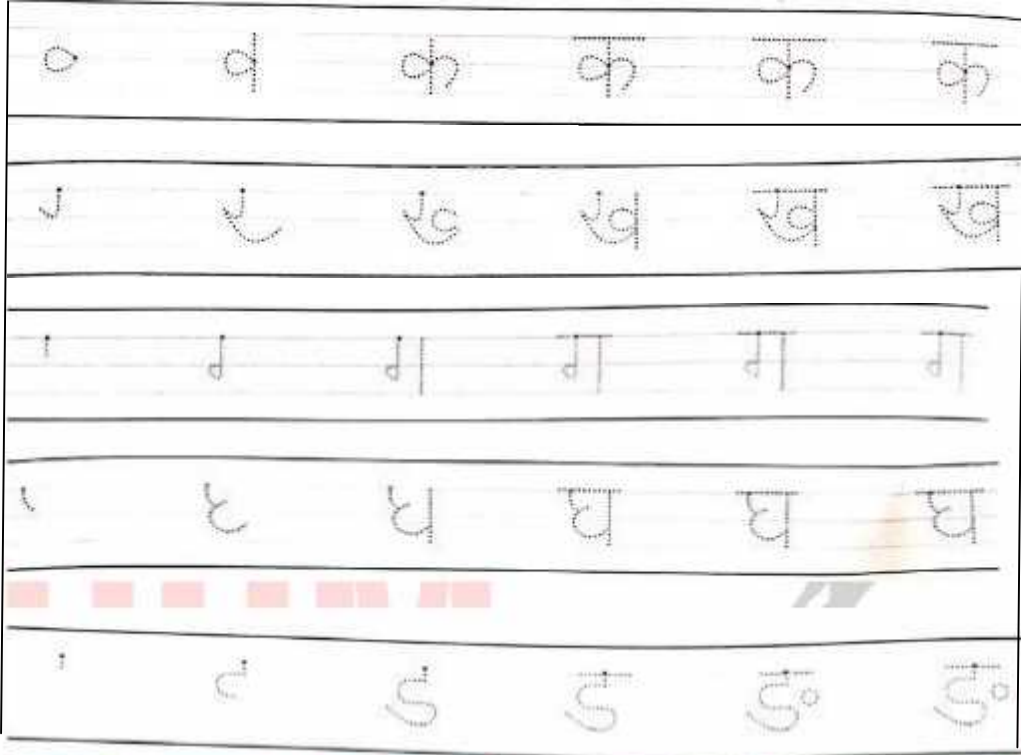 क क क
ख ख
ग ग ग
घ घ घ
ङ ङ